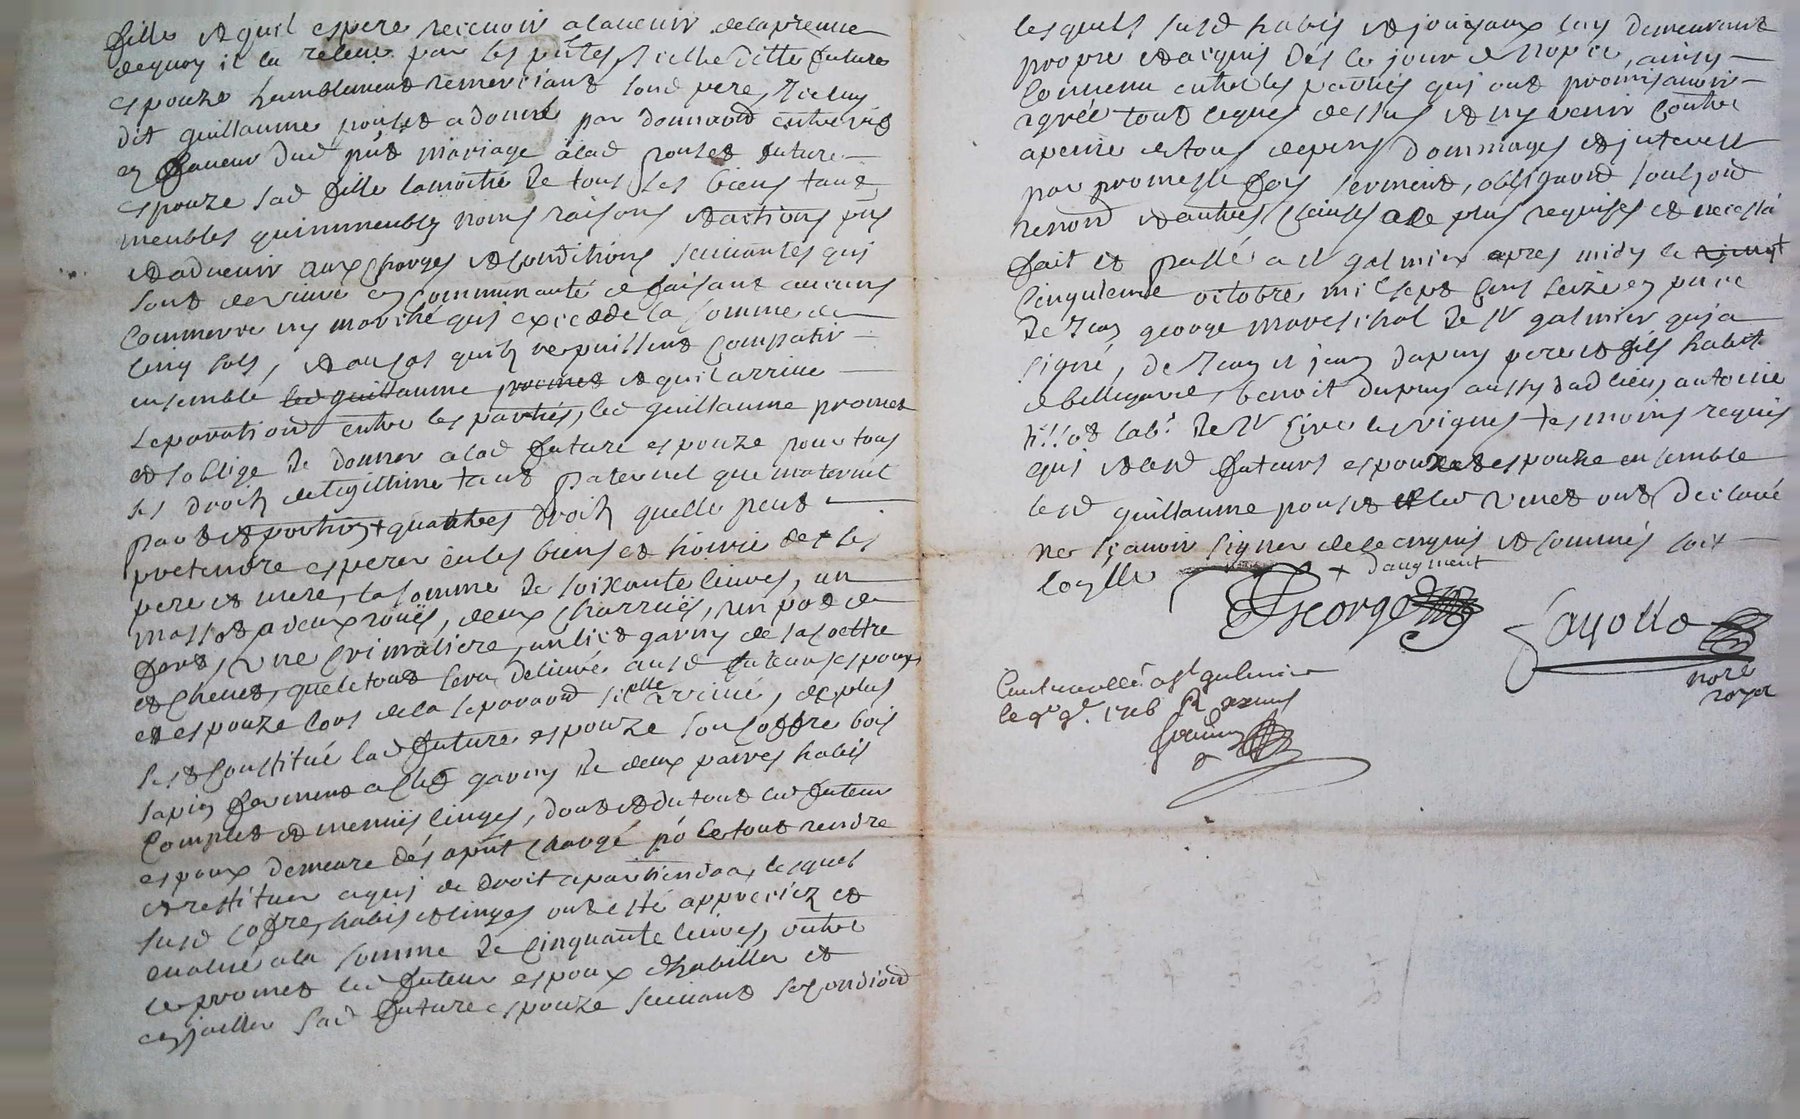 fille et quil espere recevoir a ladvenir de la preuue
dequoy il la releue par les pntes, Icelle ditte future
espouze humblement remerciant sond pere, Iceluy
dit guillaume pouset a donné par donnaõn entre vifs
en faueur dud pñt mariage a lad pouset future
espouze sad fille la moitié de tous ses biens tant
meubles quimmeubles noms raisons et actions pñs
et aduenir aux charges et conditions suiuantes qui
sont de viure en communauté ce faisant aucuns
commerce ny marché qui excedde la somme de
cinq sols, et au cas quils ne puissent compatir
ensemble led guillaume promet et quil arriue
separation entre les parties, led guillaume promet
et soblige de donner a lad future espouze pour tous
ses droits de legithime tant paternel que maternel
part et portion + quautres droits quelle peut
pretendre esperer en les biens et hoirie de ses
pere et mere, la somme de soixante liures, un
a deux roües, deux charrües, un pot de
fert, une crimaliere, un lict garny de sa coettre
et cheuet, que le tout sera deliuré ausd futeur espoux
et espouze lors de la separaõn si elle arriue, de plus
sest constitué lad future espouze son coffre bois
sapin fermant a clef garny de deux paires habis
complet et menuës linges, dont et du tout led futeur
espoux demeure dés apñt chargé po le tout rendre
et restituer a qui de droit apartiendra, lesquels
susd coffre, habis et linges ont esté appreciez et
evalué a la somme de cinquante liures, outre
ce promet led futeur espoux dhabiller et
enjoueller sad future espouze suiuant sa condiõn
lesquels susd habis et jouyaux luy demeurant
propre et acquis dés le jour de nopce, ainsy
conuenu entre les parties qui ont promis auoir
agréé tout ce que dessus et ny venir contre
a peine de tous depens dommages et interests
par promesse foy serment, obligaõn soubzõn
renonõn et autres clauses a ce plus requises et necessa
fait et passé a st galmier apres midy le vingt
cinquieme octobre mil sept cens seize en pñce
de Jean george mareschal de st galmier qui a
signé, de Jean et jean dupuy pere et fils habit
de bellegarde, benoit dupuy aussy dud lieu, antoine
labr de st Cire les vignes tesmoins requis
qui et lesd futeurs espoux et espouze ensemble
led guillaume pouset et led vinet ont declaré
ne sçauoir signer de ce enquis et sommés soit
+ daugment
George
fayolle
nore
royal
Controollé a st galmier
le 9e 9e. 1716 R